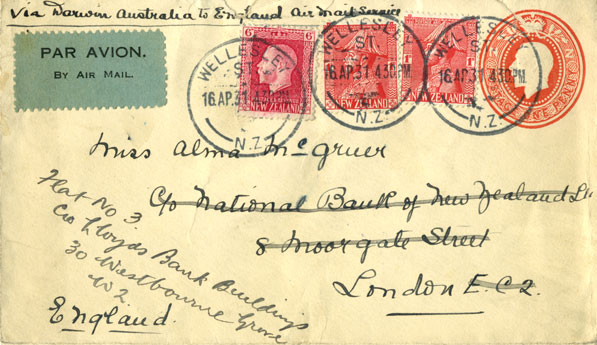 Via Darwin Australia to England Air Mail Service
PAR AVION.
BY AIR MAIL.
WELLESLEY
ST.
16.AP.31 4.30PM
N.Z.
WELLESLEY
ST.
16.AP.31 4.30PM
N.Z.
WELLESLEY
ST.
16.AP.31 4.30PM
N.Z.
6D
NEW ZEALAND
NEW ZEALAND
NEW ZEALAND
ONE PENNY
Miss Alma McGruer
c/o National Bank of New Zealand Ld
8 Moorgate Street
London E.C.2.
England.
Flat No 3
c/o Lloyds Bank Buildings
30 Westbourne Grove
W 2